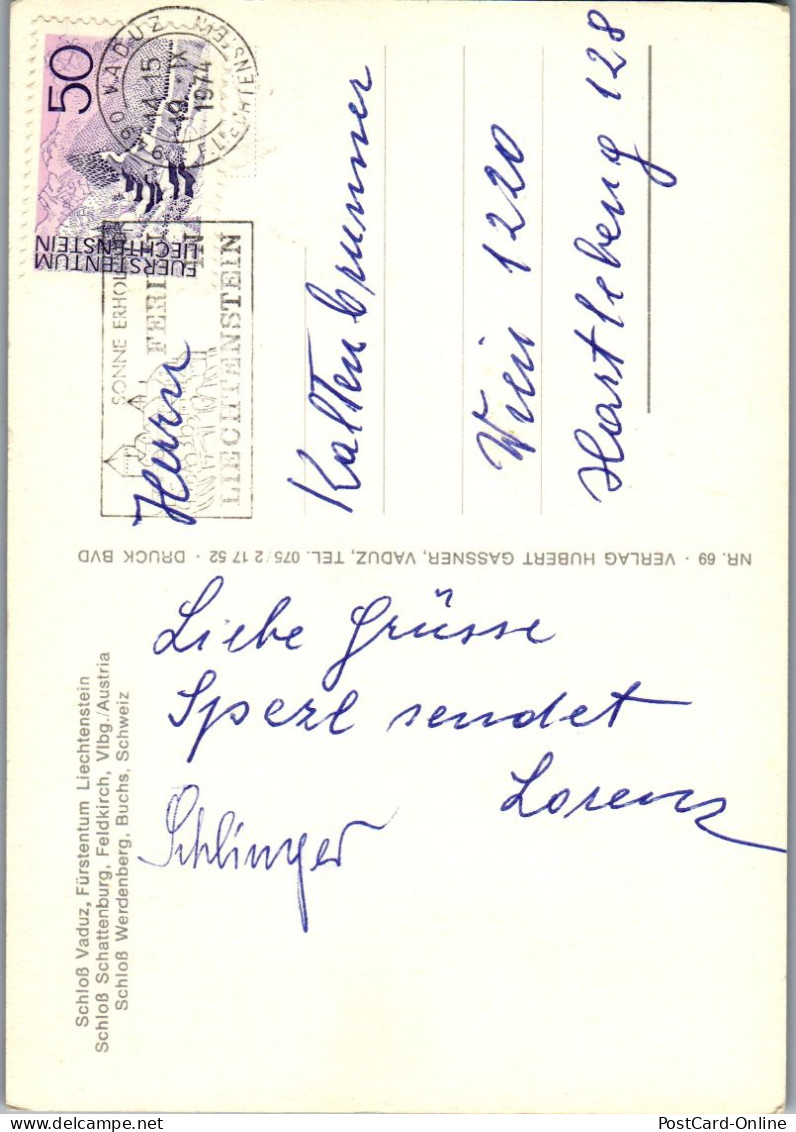 Schloß Vaduz, Fürstentum Liechtenstein
Schloß Schattenburg, Feldkirch, Vlbg./Austria
Schloß Werdenberg, Buchs, Schweiz
Liebe Grüsse
Spezl sendet
Lorenz
Schlinger
NR. 69 · VERLAG HUBERT GASSNER, VADUZ, TEL. 075/2 17 52 · DRUCK BVD
50
FUERSTENTUM
LIECHTENSTEIN
90 VADUZ
LIECHTENSTEIN
14-15
19. IX
1974
SONNE ERHOL
FERI EN
LIECHTENSTEIN
Herrn
Kaltenbrunner
Wien 1220
Hartlebeng 128
PostCard-Online